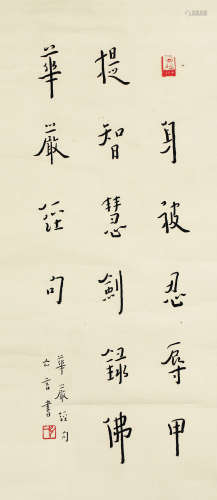 身被忍辱甲
提智慧劍
佛
華嚴經句
華嚴經句
書